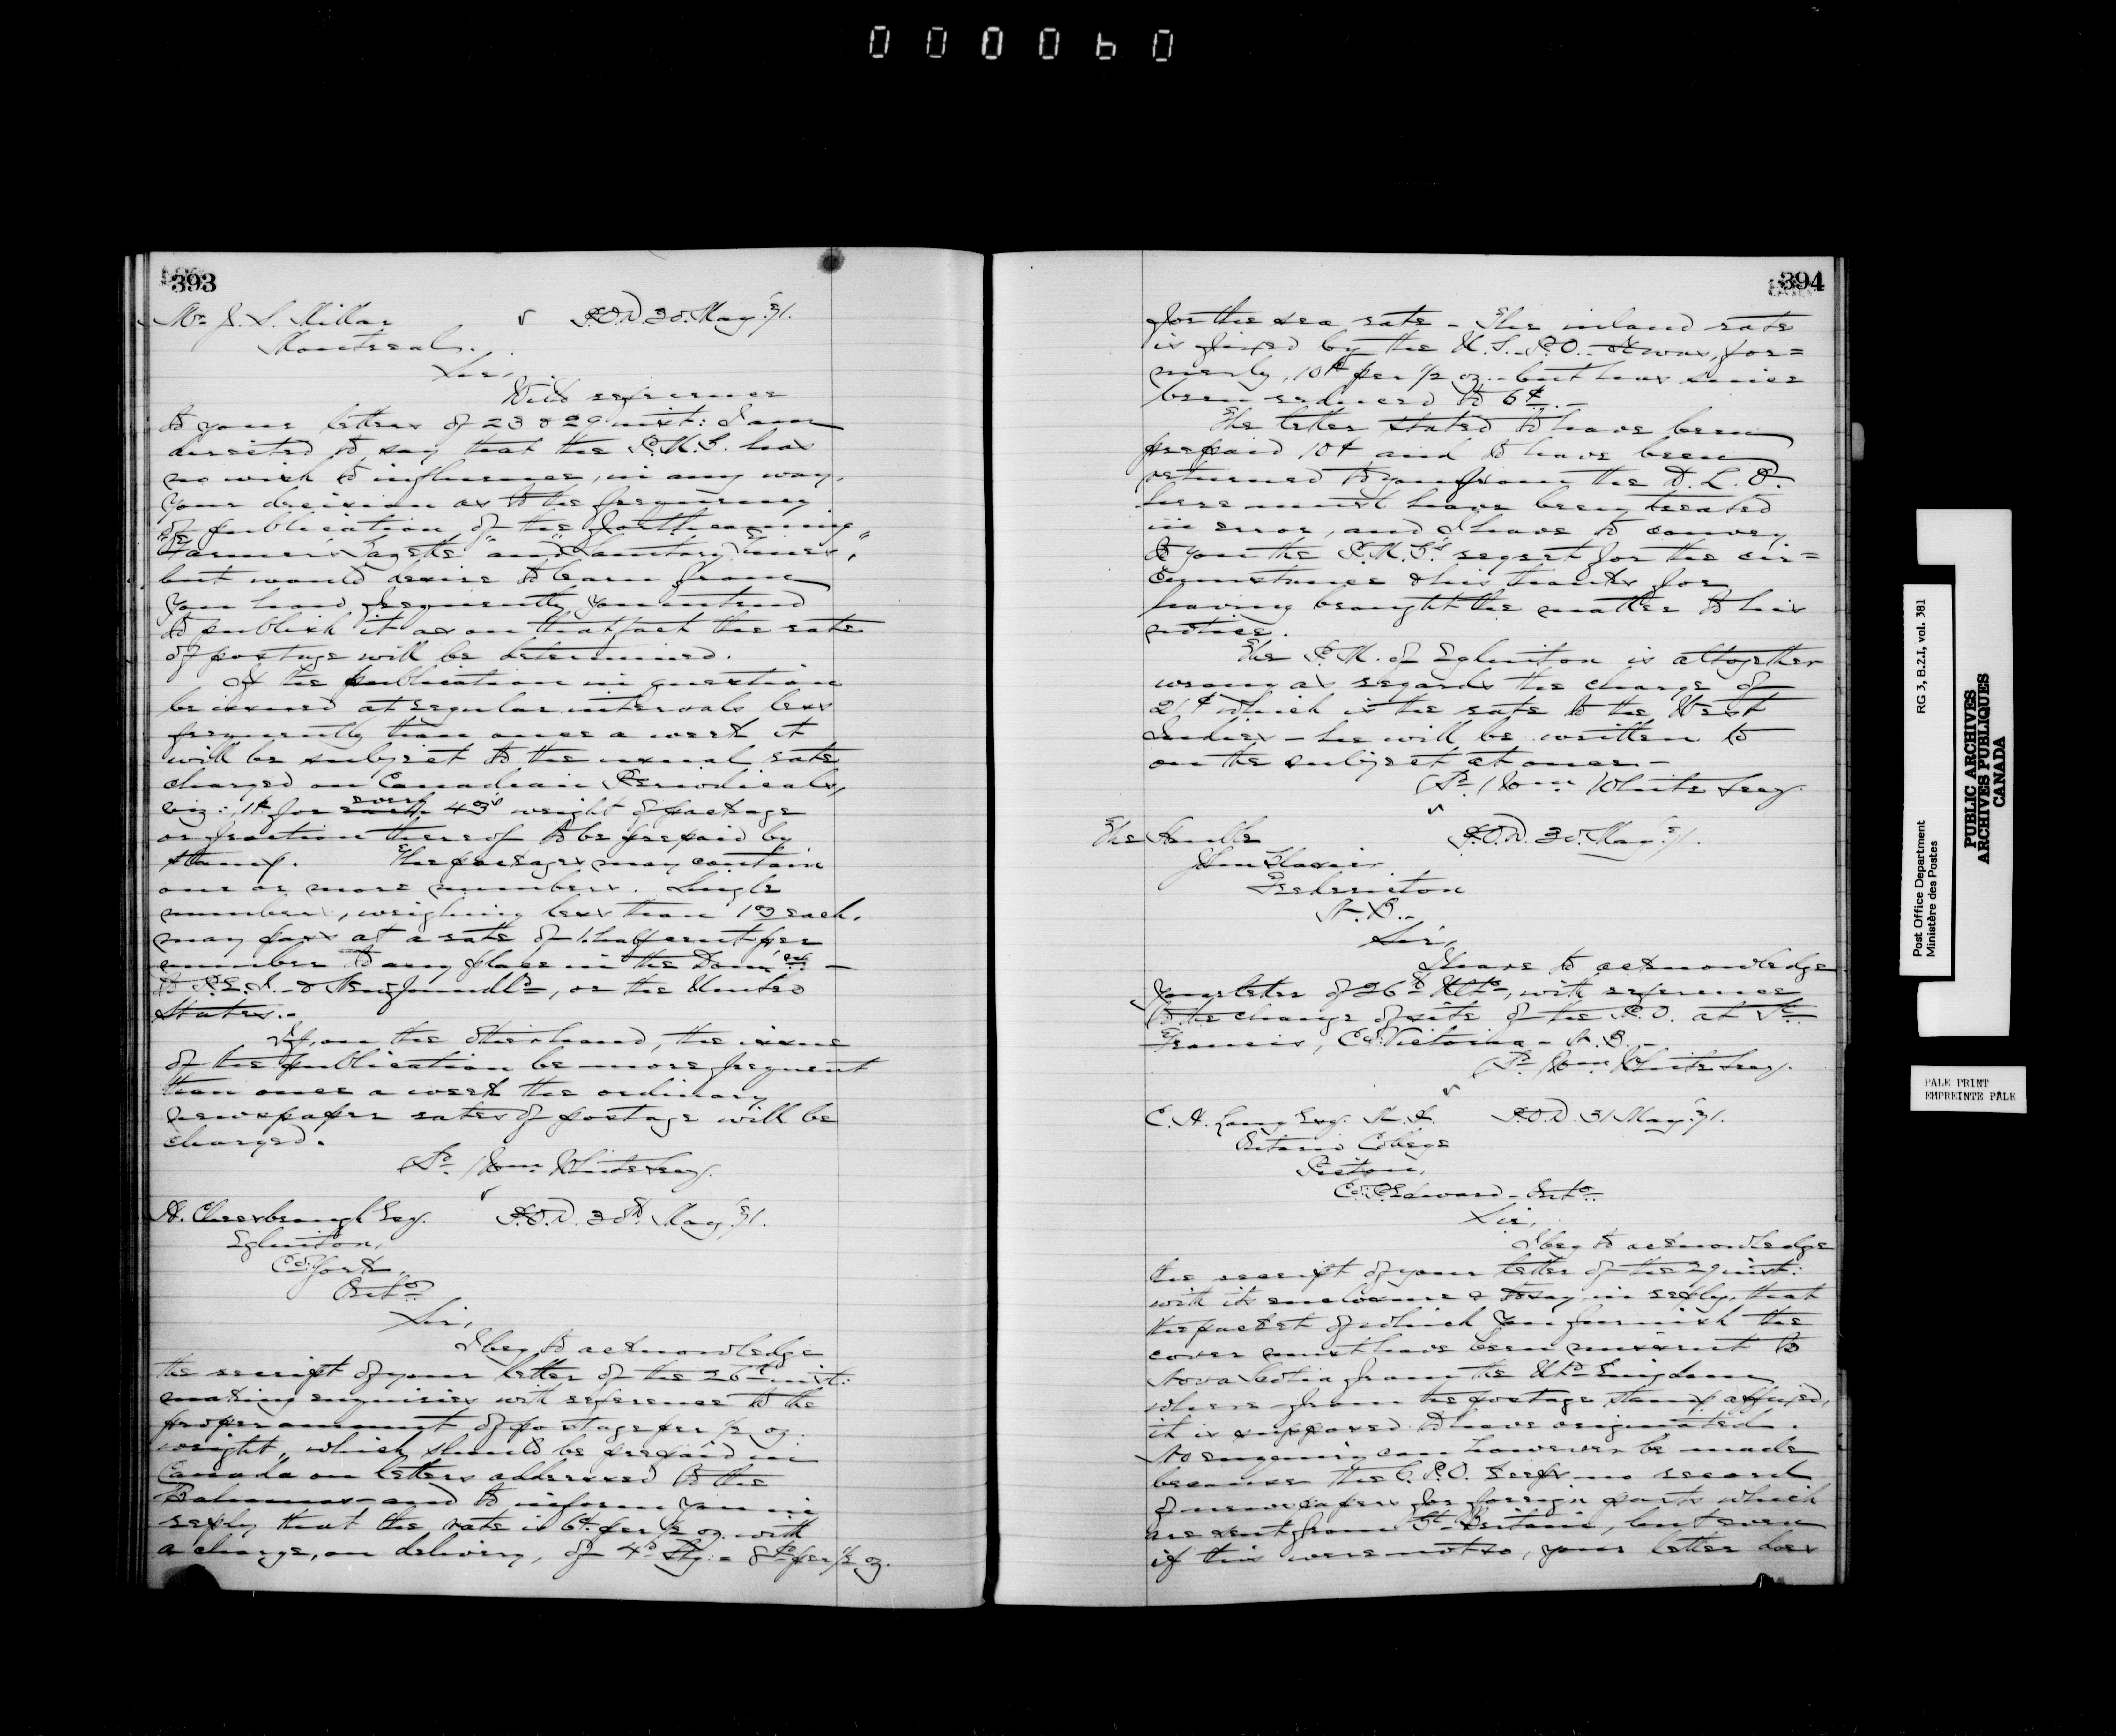 000060
393
Mr. J. L. Millar P.O.D. 30. May '71.
Montreal.
Sir,
With reference
to your letters of 23 & 29 inst: I am
directed to say that the P.M.G. has
no wish to influence, in any way,
your decision as to the frequency
of publication of the forthcoming
"Farmer's Gazette" and "Sanitary Times,"
but would desire to learn from
you how frequently you intend
to publish it as on that fact the rate
of postage will be determined.
If the publication in question
be issued at regular intervals less
frequently than once a week it
will be subject to the usual rate
charged on Canadian Periodicals,
viz: 1¢ for every 4 ozs weight of package
or fraction thereof to be prepaid by
stamp. The packages may contain
one or more numbers. Single
numbers, weighing less than 1 oz each,
may pass at a rate of 1. half cent per
number to any place in the Dom'on –
to P.E.I. & Newfoundld, or the United
States.-
If, on the other hand, the issue
of the publication be more frequent
than once a week the ordinary
newspaper rates of postage will be
charged.
(Sd. / Wm. White Secy.
H. Cheesbrough Esq. P.O.D. 30th May '71.
Eglinton,
Co. York,
Onto.
Sir,
I beg to acknowledge
the receipt of your letter of the 26th inst:
making enquiries with reference to the
proper amount of postage per ½ oz.
weight, which should be prepaid in
Canada on letters addressed to the
Bahamas – and to inform you in
reply that the rate is 6¢. per ½ oz. with
a charge, on delivery, of 4d Stg. = 8¢ per ½ oz.
394
for the sea rate – The inland rate
is fixed by the U.S. P.O. It was, for=
merly, 10¢ per ½ oz. – but has since
been reduced to 6¢. –
The letter stated to have been
prepaid 10¢ and to have been
returned to you from the D.L.O.
here must have been treated
in error, and I have to convey
to you the P.M.G's regret for the cir=
cumstance & his thanks for
having brought the matter to his
notice.
The P.M. of Eglinton is altogether
wrong as regards the charge of
21¢ which is the rate to the West
Indies – he will be written to
on the subject at once. –
(Sd. / Wm. White Secy.
The Honble P.O.D. 30. May '71.
John Glasier
Fredericton
N.B.-
Sir,
I have to acknowledge
your letter of 26th Ulto, with reference
to the change of site of the P.O. at St.
Francis, Co. Victoria – N.B. –
(Sd. / Wm. White Secy.
C. H. Long Esq. M.A. P.O.D. 31 May '71.
Ontario College
Picton,
Co. P. Edward – Onto.
Sir,
I beg to acknowledge
the receipt of your letter of the 29 inst:
with its enclosure & to say, in reply, that
the packet of which you furnish the
cover must have been missent to
Nova Scotia from the Utd Kingdom
where from the postage stamp affixed,
it is supposed to have originated.
No enquiry can however be made
because the C.P.O. keeps no record
of newspapers for foreign parts which
are sent from Gt. Britain, but even
if this were not so, your letter does
Post Office Department RG 3, B.2.I, vol. 381
Ministère des Postes
PUBLIC ARCHIVES
ARCHIVES PUBLIQUES
CANADA
PALE PRINT
EMPREINTE PALE